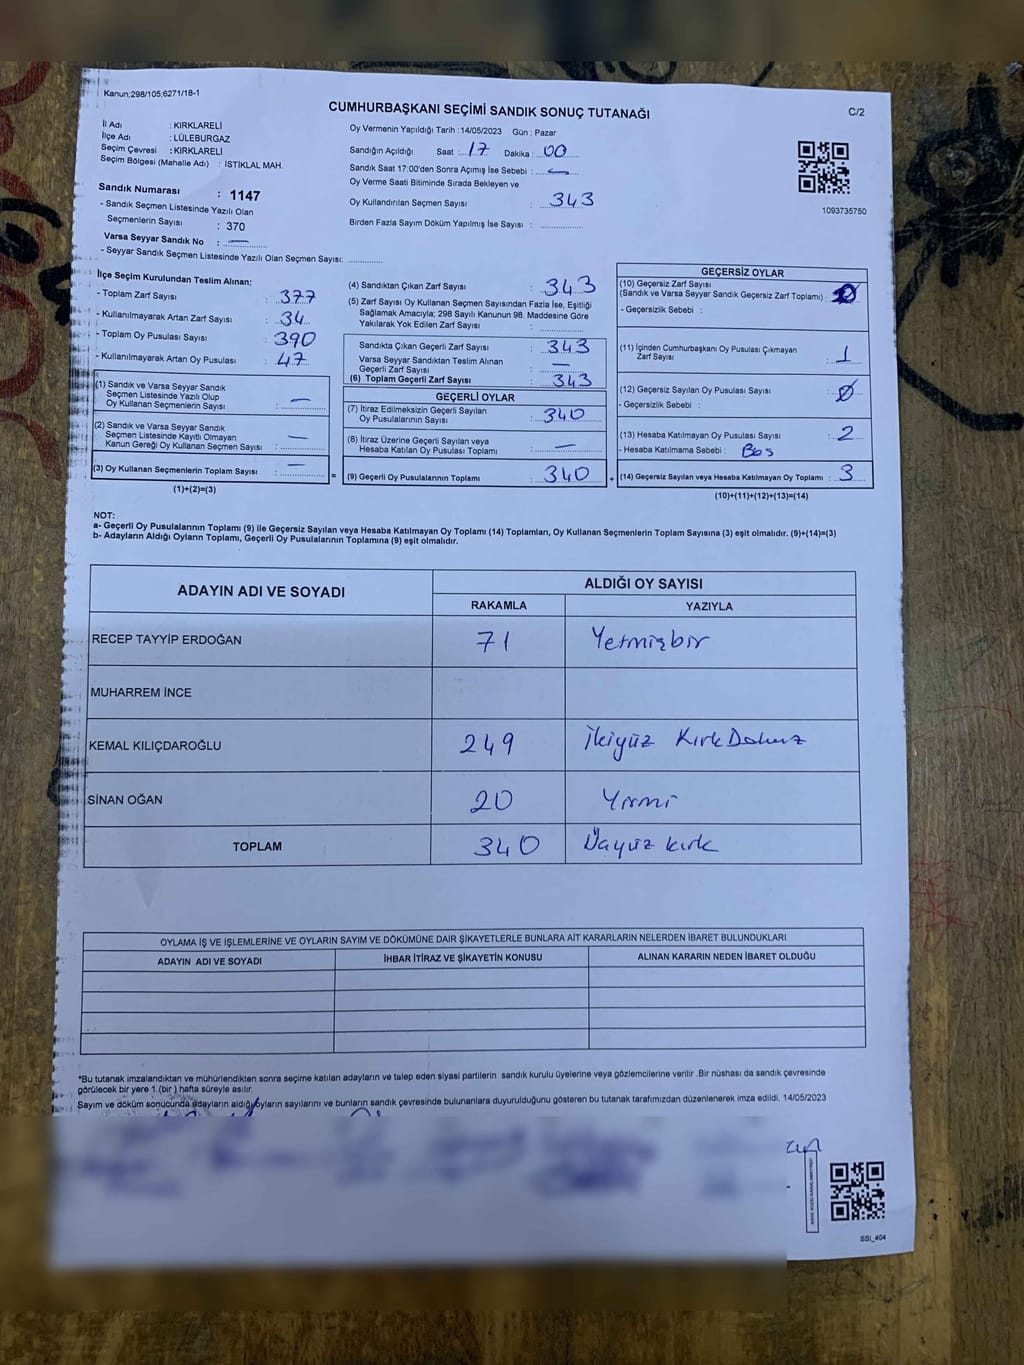 Kanun;298/105;6271/18-1
CUMHURBAŞKANI SEÇİMİ SANDIK SONUÇ TUTANAĞI
C/2
İl Adı : KIRKLARELİ
İlçe Adı : LÜLEBURGAZ
Seçim Çevresi : KIRKLARELİ
Seçim Bölgesi (Mahalle Adı) : İSTİKLAL MAH.
Sandık Numarası : 1147
- Sandık Seçmen Listesinde Yazılı Olan
Seçmenlerin Sayısı : 370
Varsa Seyyar Sandık No : —
- Seyyar Sandık Seçmen Listesinde Yazılı Olan Seçmen Sayısı:
Oy Vermenin Yapıldığı Tarih : 14/05/2023 Gün : Pazar
Sandığın Açıldığı Saat : 17 Dakika : 00
Sandık Saat 17:00'den Sonra Açımış İse Sebebi : —
Oy Verme Saati Bitiminde Sırada Bekleyen ve
Oy Kullandırılan Seçmen Sayısı : 343
Birden Fazla Sayım Döküm Yapılmış İse Sayısı :
1093735750
İlçe Seçim Kurulundan Teslim Alınan:
- Toplam Zarf Sayısı : 377
- Kullanılmayarak Artan Zarf Sayısı : 34
- Toplam Oy Pusulası Sayısı : 390
- Kullanılmayarak Artan Oy Pusulası : 47
(1) Sandık ve Varsa Seyyar Sandık
Seçmen Listesinde Yazılı Olup
Oy Kullanan Seçmenlerin Sayısı : —
(2) Sandık ve Varsa Seyyar Sandık
Seçmen Listesinde Kayıtlı Olmayan
Kanun Gereği Oy Kullanan Seçmen Sayısı : —
(3) Oy Kullanan Seçmenlerin Toplam Sayısı : —
(1)+(2)=(3)
=
(4) Sandıktan Çıkan Zarf Sayısı : 343
(5) Zarf Sayısı Oy Kullanan Seçmen Sayısından Fazla İse, Eşitliği
Sağlamak Amacıyla; 298 Sayılı Kanunun 98. Maddesine Göre
Yakılarak Yok Edilen Zarf Sayısı :
Sandıkta Çıkan Geçerli Zarf Sayısı : 343
Varsa Seyyar Sandıktan Teslim Alınan
Geçerli Zarf Sayısı : —
(6) Toplam Geçerli Zarf Sayısı : 343
GEÇERLİ OYLAR
(7) İtiraz Edilmeksizin Geçerli Sayılan
Oy Pusulalarının Sayısı : 340
(8) İtiraz Üzerine Geçerli Sayılan veya
Hesaba Katılan Oy Pusulası Toplamı : —
(9) Geçerli Oy Pusulalarının Toplamı : 340
+
GEÇERSİZ OYLAR
(10) Geçersiz Zarf Sayısı
(Sandık ve Varsa Seyyar Sandık Geçersiz Zarf Toplamı) : 0
- Geçersizlik Sebebi :
(11) İçinden Cumhurbaşkanı Oy Pusulası Çıkmayan
Zarf Sayısı : 1
(12) Geçersiz Sayılan Oy Pusulası Sayısı : 0
- Geçersizlik Sebebi :
(13) Hesaba Katılmayan Oy Pusulası Sayısı : 2
- Hesaba Katılmama Sebebi : Boş
(14) Geçersiz Sayılan veya Hesaba Katılmayan Oy Toplamı : 3
(10)+(11)+(12)+(13)=(14)
NOT:
a- Geçerli Oy Pusulalarının Toplamı (9) ile Geçersiz Sayılan veya Hesaba Katılmayan Oy Toplamı (14) Toplamları, Oy Kullanan Seçmenlerin Toplam Sayısına (3) eşit olmalıdır. (9)+(14)=(3)
b- Adayların Aldığı Oyların Toplamı, Geçerli Oy Pusulalarının Toplamına (9) eşit olmalıdır.
ADAYIN ADI VE SOYADI
ALDIĞI OY SAYISI
RAKAMLA YAZIYLA
RECEP TAYYİP ERDOĞAN 71 Yetmişbir
MUHARREM İNCE
KEMAL KILIÇDAROĞLU 249 İkiyüz Kırk Dokuz
SİNAN OĞAN 20 Yirmi
TOPLAM 340 Üçyüz kırk
OYLAMA İŞ VE İŞLEMLERİNE VE OYLARIN SAYIM VE DÖKÜMÜNE DAİR ŞİKAYETLERLE BUNLARA AİT KARARLARIN NELERDEN İBARET BULUNDUKLARI
ADAYIN ADI VE SOYADI İHBAR İTİRAZ VE ŞİKAYETİN KONUSU ALINAN KARARIN NEDEN İBARET OLDUĞU
*Bu tutanak imzalandıktan ve mühürlendikten sonra seçime katılan adayların ve talep eden siyasi partilerin sandık kurulu üyelerine veya gözlemcilerine verilir .Bir nüshası da sandık çevresinde
görülecek bir yere 1 (bir ) hafta süreyle asılır.
Sayım ve döküm sonucunda adayların aldığı oyların sayılarını ve bunların sandık çevresinde bulunanlara duyurulduğunu gösteren bu tutanak tarafımızdan düzenlenerek imza edildi. 14/05/2023
SSI_404